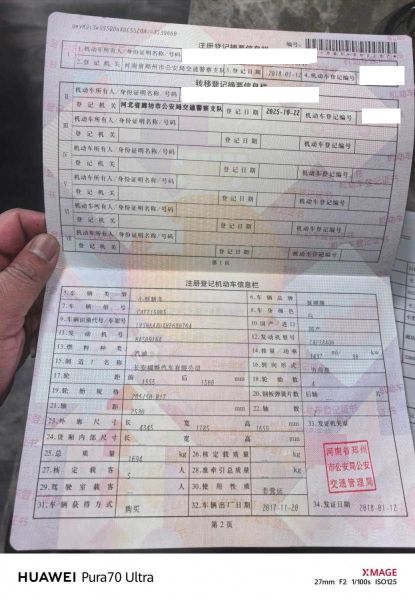 注册登记摘要信息栏
1.机动车所有人/身份证明名称/号码
2.登记机关 河南省郑州市公安局交通警察支队 3.登记日期 2018-01-12 4.机动车登记编号
转移登记摘要信息栏
Ⅱ 机动车所有人/身份证明名称/号码
登记机关 河北省廊坊市公安局交通警察支队 登记日期 2025-10-22 机动车登记编号
Ⅲ 机动车所有人/身份证明名称/号码
登记机关 登记日期 机动车登记编号
Ⅳ 机动车所有人/身份证明名称/号码
登记机关 登记日期 机动车登记编号
Ⅴ 机动车所有人/身份证明名称/号码
登记机关 登记日期 机动车登记编号
Ⅵ 机动车所有人/身份证明名称/号码
登记机关 登记日期 机动车登记编号
Ⅶ 机动车所有人/身份证明名称/号码
登记机关 登记日期 机动车登记编号
第1页
注册登记机动车信息栏
5.车辆类型 小型轿车 6.车辆品牌 福睿斯
7.车辆型号 8.车身颜色 白
9.车辆识别代号/车架号 10.国产/进口 国产
11.发动机号 12.发动机型号
13.燃料种类 汽油 14.排量/功率 ml/ kw
15.制造厂名称 长安福特汽车有限公司 16.转向形式
17.轮距 前 1555 后 1580 mm 18.轮胎数 4
19.轮胎规格 20.钢板弹簧片数 后轴 片
21.轴距 mm 22.轴数
23.外廓尺寸 长 4345 宽 1785 高 mm 33.发证机关章
24.货厢内部尺寸 长 宽 高 mm
25.总质量 1694 kg 26.核定载质量 kg
27.核定载客 5 人 28.准牵引总质量 kg
29.驾驶室载客 人 30.使用性质 非营运
31.车辆获得方式 购买 32.车辆出厂日期 2017-11-20 34.发证日期 2018-01-12
河南省郑州
市公安局公安
交通管理局
第2页
HUAWEI Pura70 Ultra
XMAGE
27mm F2 1/100s ISO125